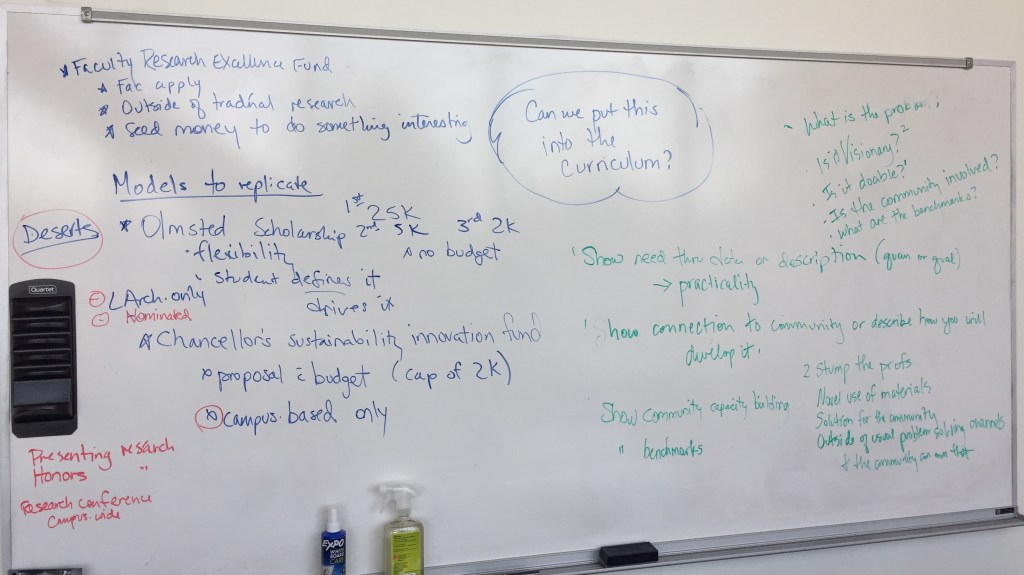 * Faculty Research Excellence Fund
* Fac apply
* Outside of tradn'al research
* Seed money to do something interesting
Can we put this
into the
Curriculum?
Models to replicate
Deserts
* Olmsted Scholarship 1st 25K
2nd 5K 3rd 2K
• flexibility
* no budget
• Student defines it
drives it
⊖ LArch. only
⊖ Nominated
* Chancellor's sustainability innovation fund
* proposal c̄ budget (cap of 2K)
* campus-based only
Presenting research
Honors "
Research conference
Campus-wide
Quartet
EXPO
WHITE
BOARD
• What is the
Is it Visionary? 2
• Is it doable?
• Is the community involved?
• What are the benchmarks?
' Show need thru data or description (quan or qual)
→ practicality
' Show connection to community or describe how you will
develop it.
Show Community capacity building
" benchmarks
2 Stump the profs
Novel use of materials
Solution for the community
Outside of usual problem solving channels
& the community can own that